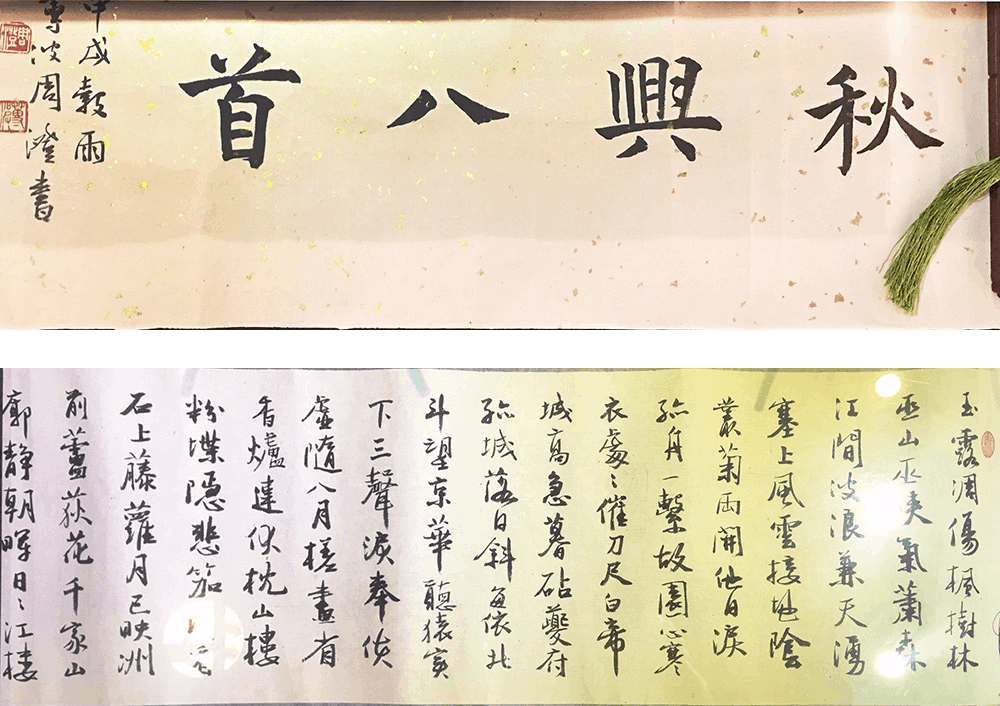 秋興八首
甲戌穀雨
波周澄書
玉露凋傷楓樹林
巫山巫峽氣蕭森
江間波浪兼天湧
塞上風雲接地陰
叢菊兩開他日淚
孤舟一繫故園心寒
衣處〻催刀尺白帝
城高急暮砧夔府
孤城落日斜每依北
斗望京華聽猿實
下三聲淚奉使
虛隨八月槎畫省
香爐違伏枕山樓
粉堞隱悲笳
石上藤蘿月已映洲
前蘆荻花千家山
郭靜朝暉日〻江樓